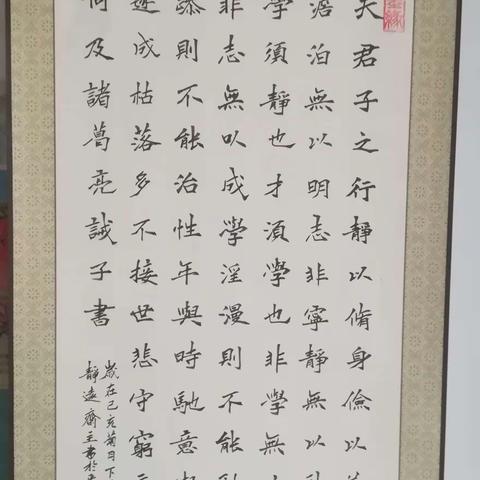 夫君子之行靜以脩身儉以
澹泊無以明志非寧靜無以
學須靜也才須學也非學無
非志無以成學淫漫則不能
躁則不能治性年與時馳意
遂成枯落多不接世悲守窮
何及諸葛亮誡子書
歲在己亥菊月下
靜遠齋主書於